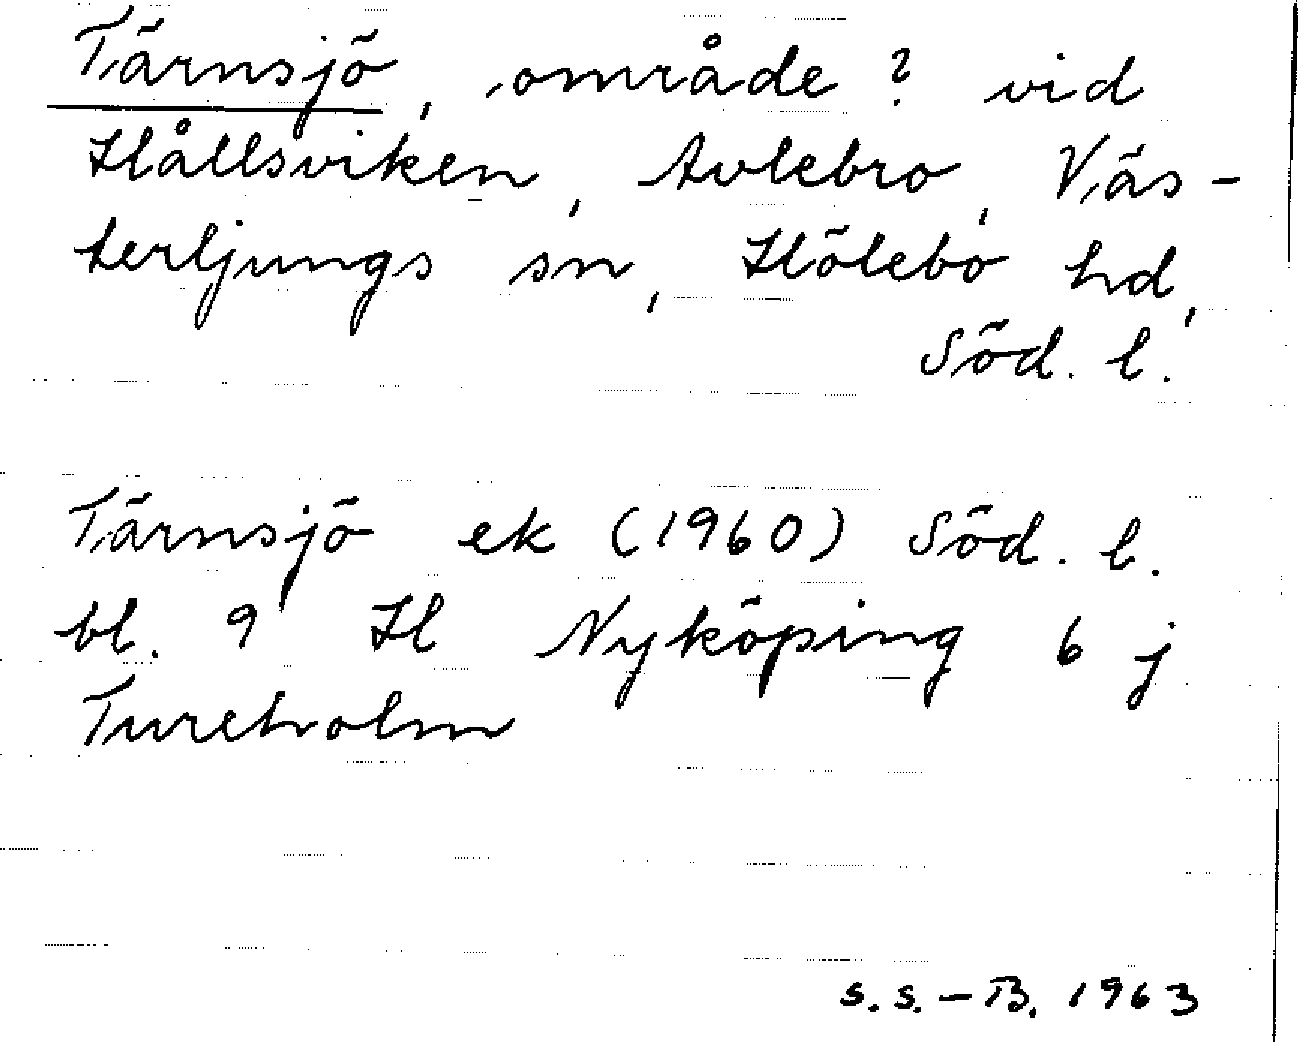 Tärnsjö, område? vid
Hållsviken, Avlebro, Väs-
terljungs sn, Hölebo hd,
Söd. l.
Tärnsjö ek (1960) Söd. l.
bl. 9 H Nyköping 6 j
Tureholm
S. S. - B. 1963